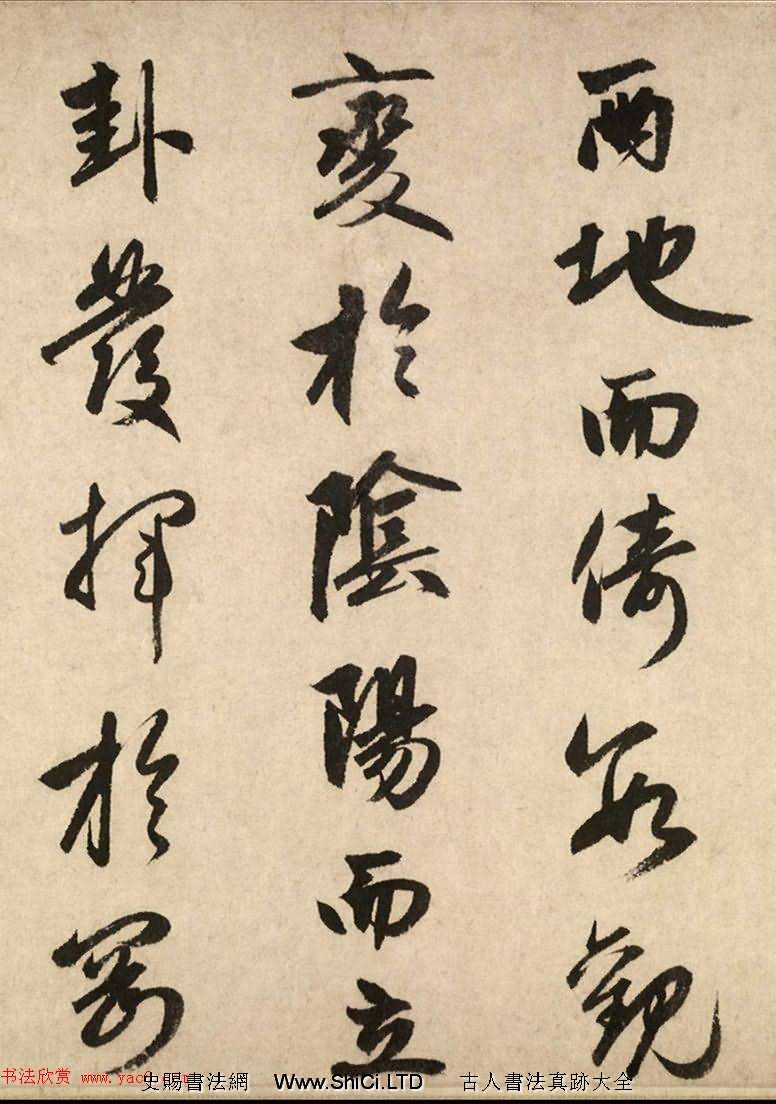 兩地而倚數觀
變於陰陽而立
卦發揮於剛
书法欣赏 www.yac8.com
史賜書法網 Www.ShiCi.LTD 古人書法真跡大全